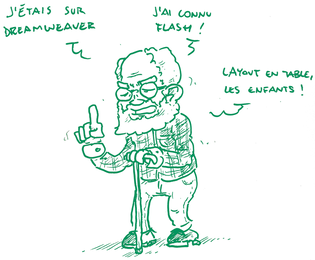 J'ÉTAIS SUR
DREAMWEAVER
J'AI CONNU
FLASH !
LAYOUT EN TABLE,
LES ENFANTS !